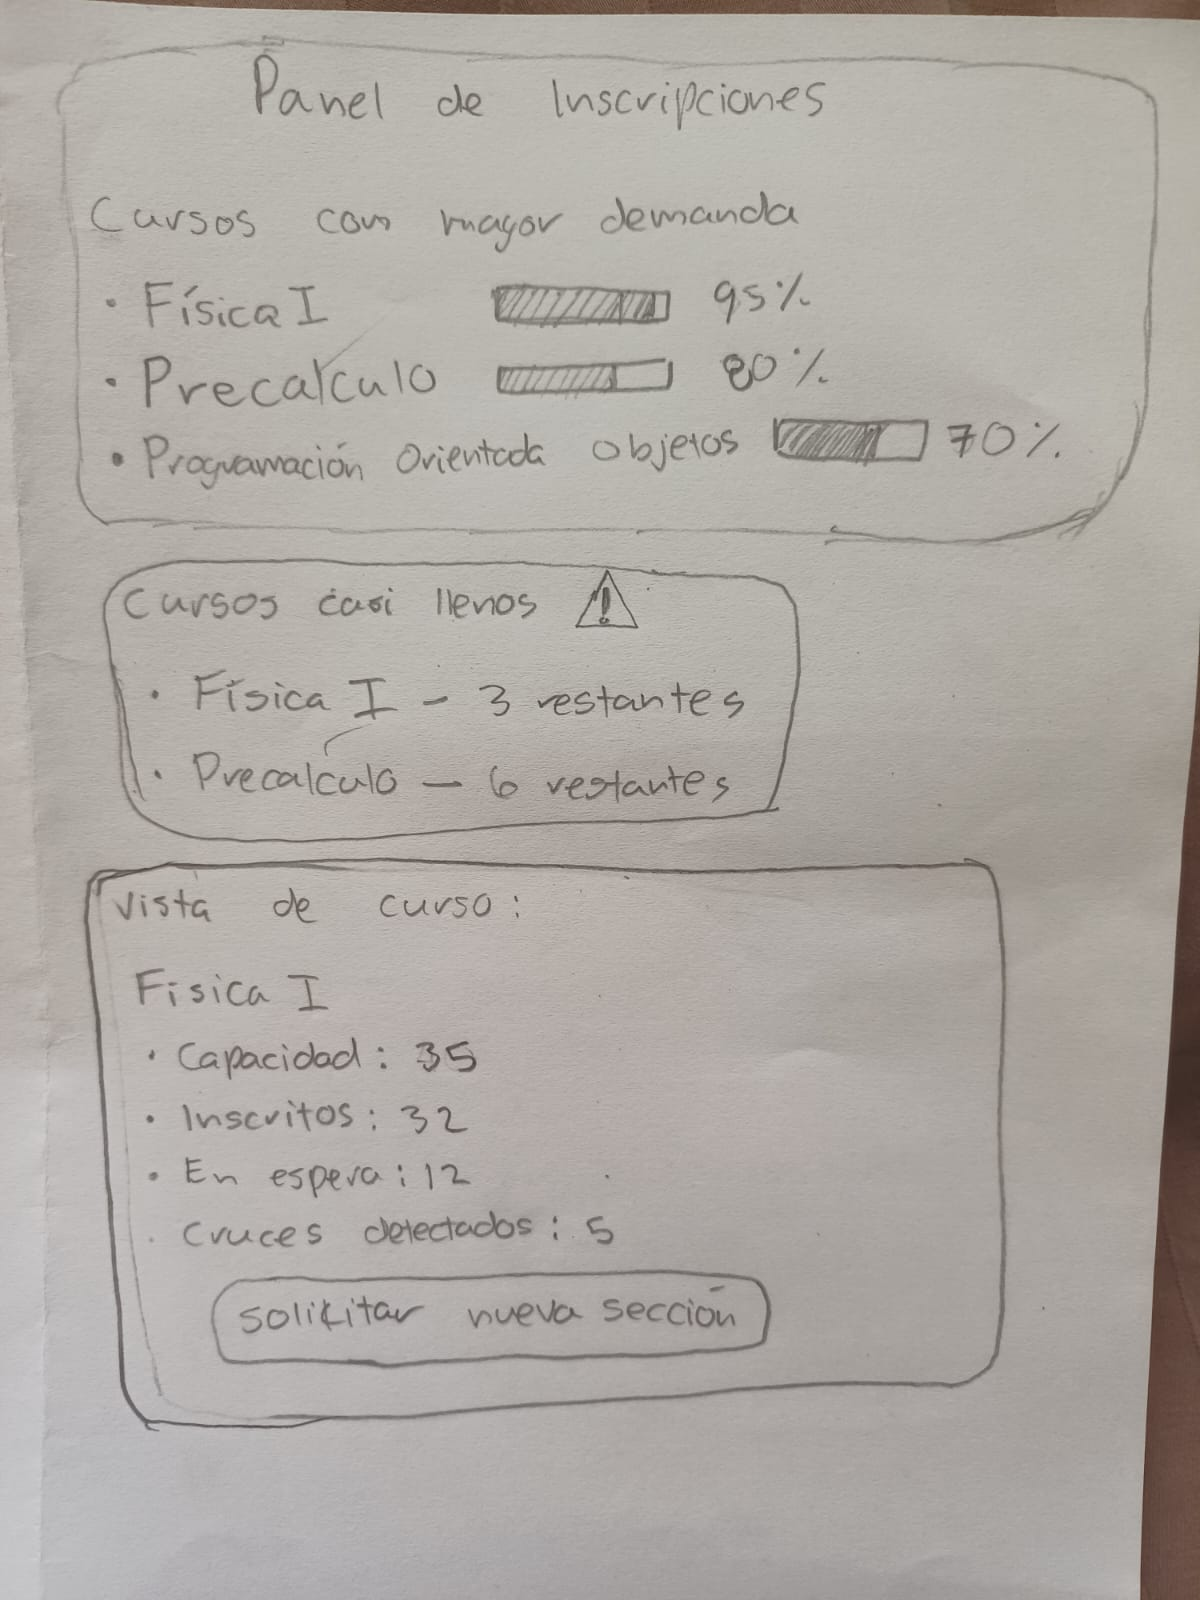 Panel de Inscripciones
Cursos con mayor demanda
• Física I 95%
• Precalculo 80%
• Programación Orientada objetos 70%
Cursos casi llenos !
• Física I - 3 restantes
• Precalculo - 6 restantes
Vista de curso:
Fisica I
• Capacidad: 35
• Inscritos: 32
• En espera: 12
• Cruces detectados: 5
solicitar nueva sección